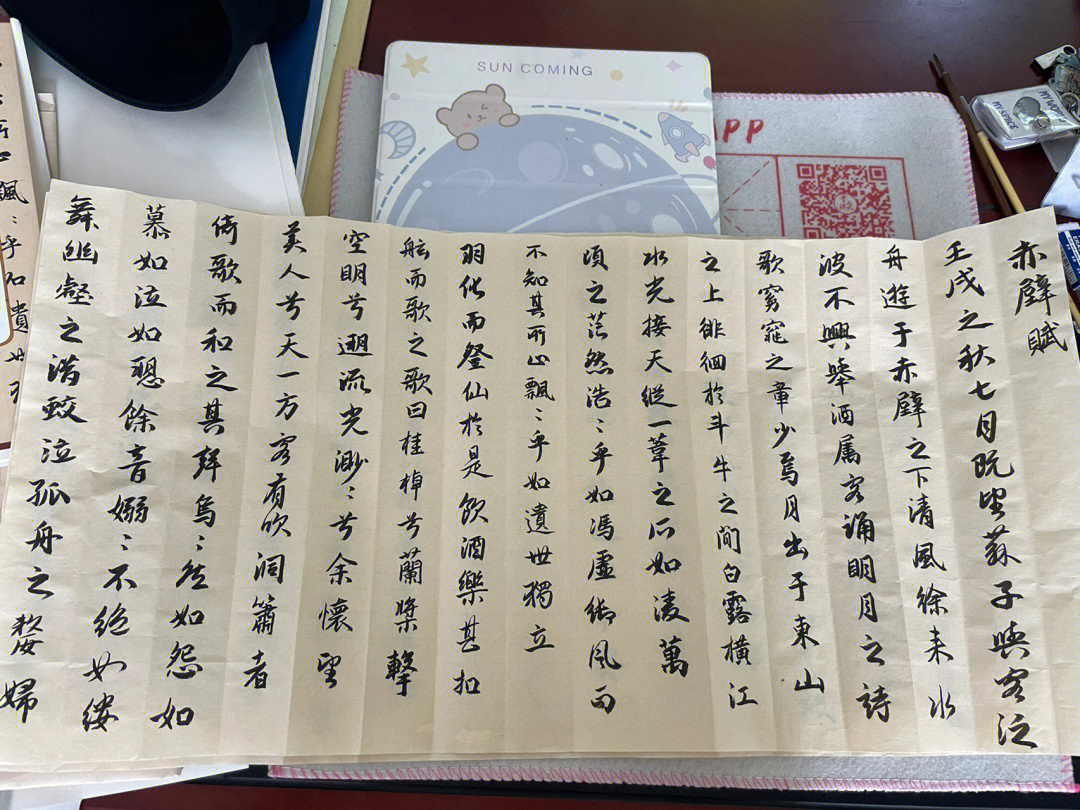 SUN COMING
APP
MY WORLD
MY SPACE
赤壁賦
壬戌之秋七月既望蘇子與客泛
舟遊于赤壁之下清風徐来水
波不興舉酒属客誦明月之詩
歌窈窕之章少焉月出于東山
之上徘徊於斗牛之間白露橫江
水光接天縱一葦之所如凌萬
頃之茫然浩〻乎如馮虛御風而
不知其所止飄〻乎如遺世獨立
羽化而登仙於是飲酒樂甚扣
舷而歌之歌曰桂棹兮蘭槳擊
空明兮遡流光渺〻兮余懷望
美人兮天一方客有吹洞簫者
倚歌而和之其聲烏〻然如怨如
慕如泣如聴餘音嫋〻不絕如縷
舞幽壑之潜蛟泣孤舟之嫠婦